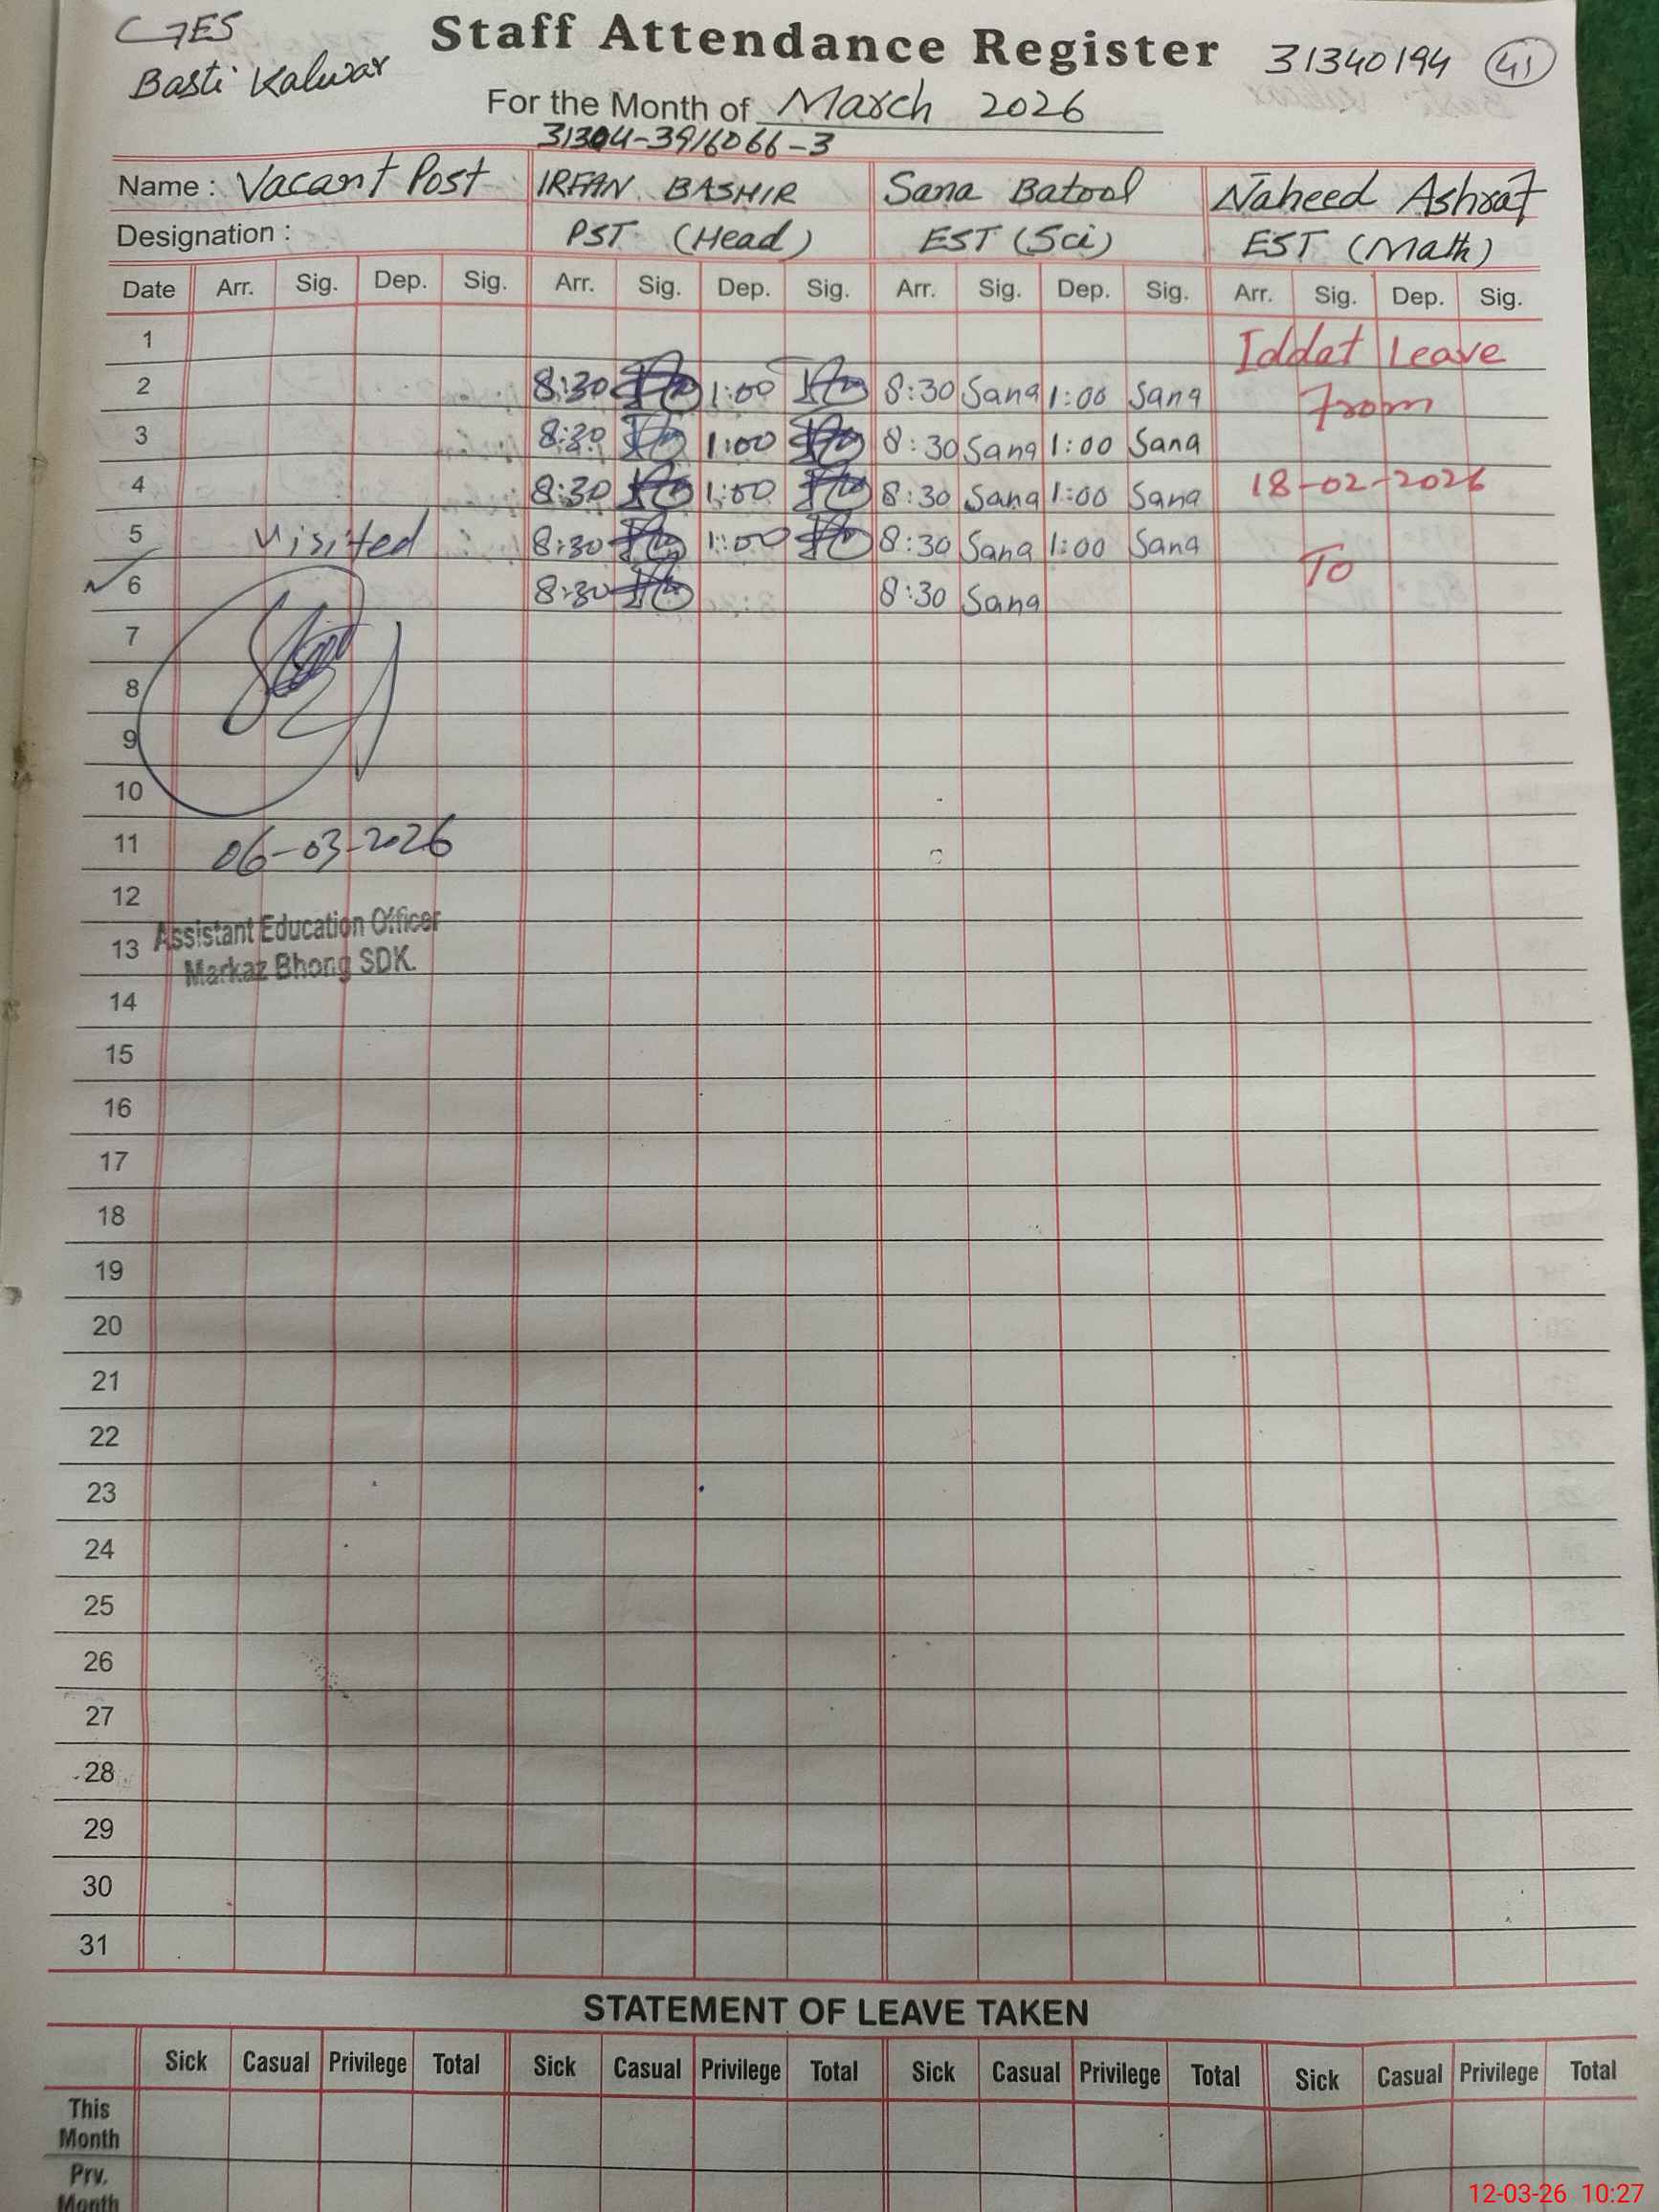 GES
Basti Kalwar
Staff Attendance Register 31340194 41
For the Month of March 2026
31304-3916066-3
Name : Vacant Post IRFAN BASHIR Sana Batool Naheed Ashraf
Designation : PST (Head) EST (Sci) EST (Math)
Date Arr. Sig. Dep. Sig. Arr. Sig. Dep. Sig. Arr. Sig. Dep. Sig. Arr. Sig. Dep. Sig.
1 Iddat Leave
2 8:30 1:00 8:30 Sana 1:00 Sana From
3 8:30 1:00 8:30 Sana 1:00 Sana
4 8:30 1:00 8:30 Sana 1:00 Sana 18-02-2026
5 Visited 8:30 1:00 8:30 Sana 1:00 Sana
6 8:30 8:30 Sana To
7
8
9
10
11 06-03-2026
12
13 Assistant Education Officer
Markaz Bhong SDK.
14
15
16
17
18
19
20
21
22
23
24
25
26
27
28
29
30
31
STATEMENT OF LEAVE TAKEN
Sick Casual Privilege Total Sick Casual Privilege Total Sick Casual Privilege Total Sick Casual Privilege Total
This
Month
Prv.
Month
12-03-26 10:27